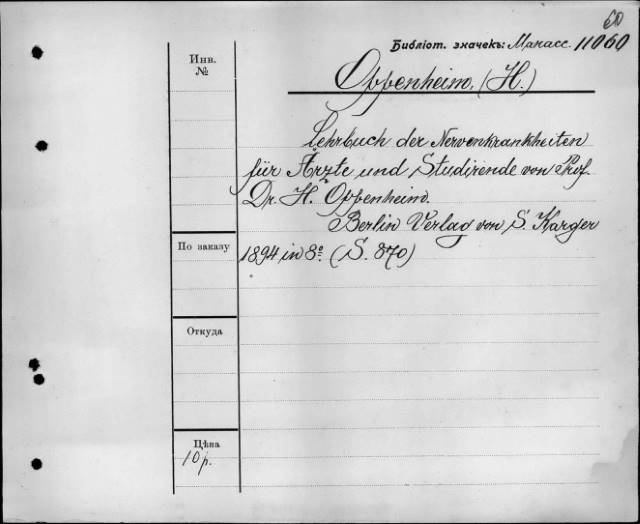 60
Библіот. значекъ: Манасс. 11060
Инв.
№
Oppenheim, (H.)
Lehrbuch der Nervenkrankheiten
für Ärzte und Studirende von Prof.
Dr. H. Oppenheim.
Berlin Verlag von S. Karger
По заказу
1894 in 8º. (S. 870)
Откуда
Цѣна
10 р.